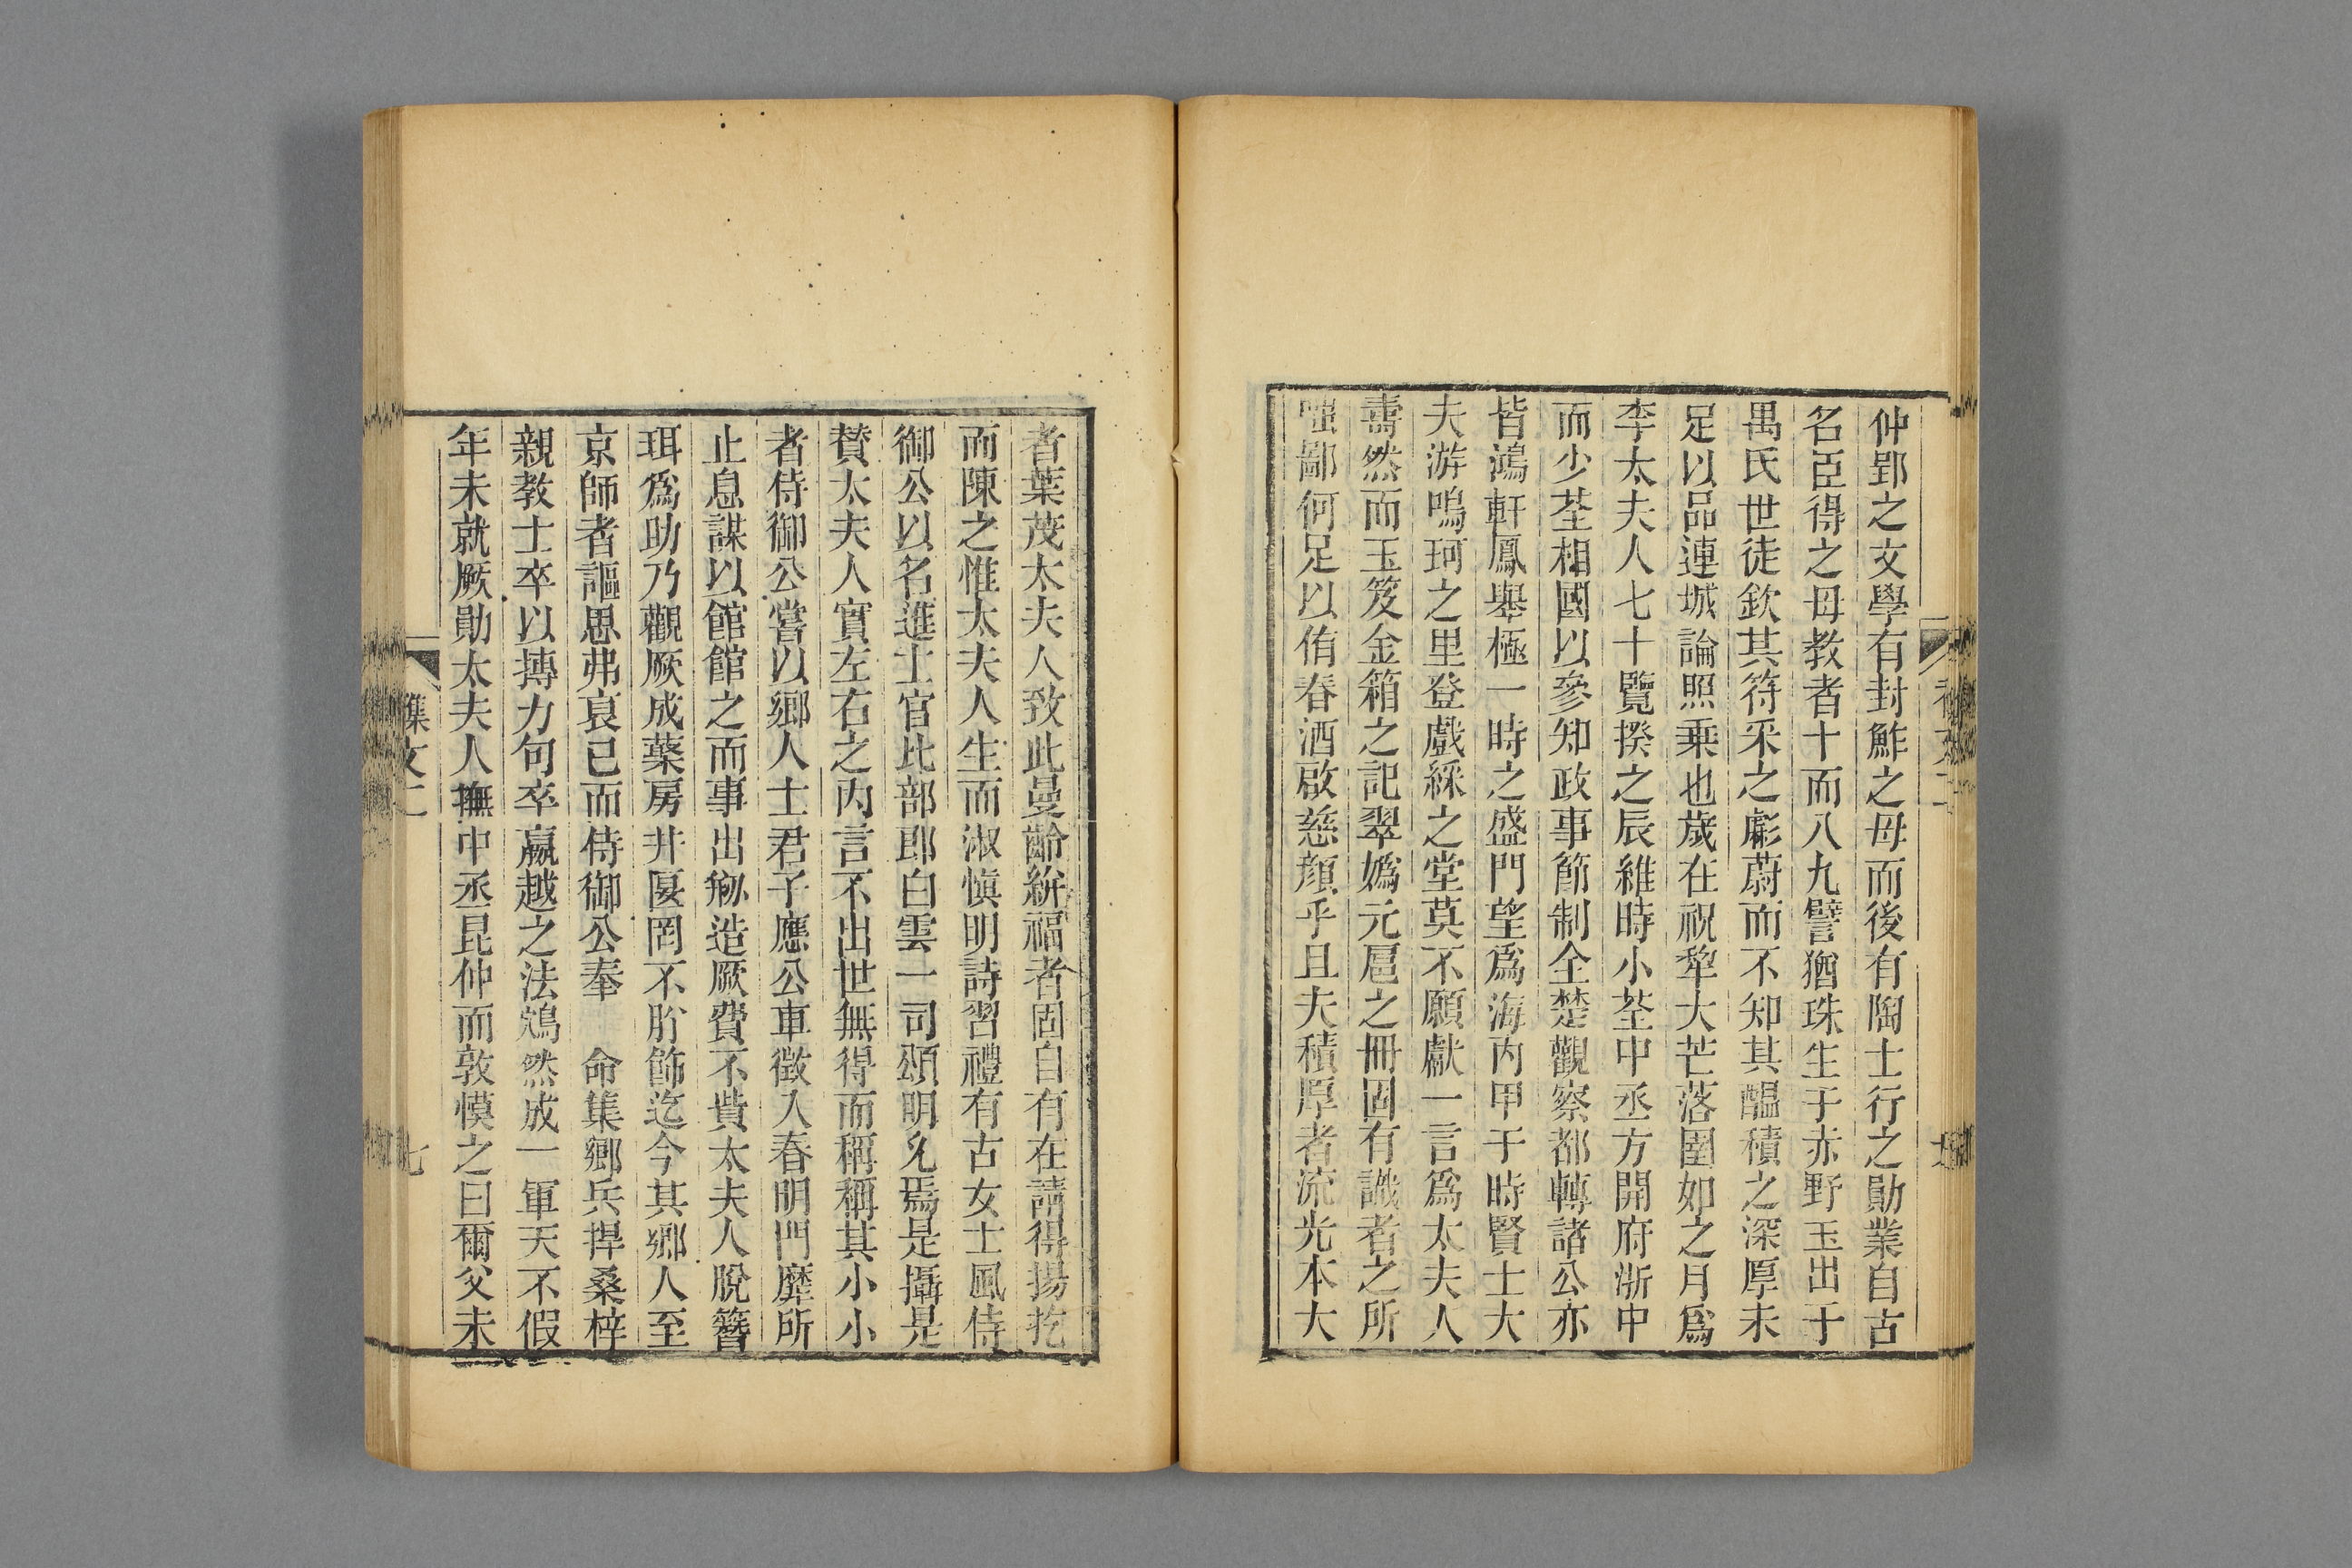 仲郢之文學有封鮓之母而後有陶士行之勛業自古
名臣得之母教者十而八九譬猶珠生于赤野玉出于
禺氏世徒欽其符采之彪蔚而不知其醖積之深厚未
足以品連城論照乗也歲在祝犂大芒落圉如之月爲
李太夫人七十覽揆之辰維時小荃中丞方開府浙中
而少荃相國以參知政事節制全楚觀察都轉諸公亦
皆鴻軒鳳舉極一時之盛門望爲海内甲于時賢士大
夫游鳴珂之里登戲綵之堂莫不願獻一言爲太夫人
壽然而玉笈金箱之記翠嬀元扈之冊固有識者之所
嗤鄙何足以侑春酒啟慈顔乎且夫積厚者流光本大
者葉茂太夫人致此曼齡絣福者固自有在請得揚扢
而陳之惟太夫人生而淑慎明詩習禮有古女士風侍
御公以名進士官比部郎白雲一司頌明允焉是攝是
贊太夫人實左右之内言不出世無得而稱稱其小小
者侍御公嘗以鄉人士君子應公車徵入春明門靡所
止息謀以館館之而事出剙造厥費不貲太夫人脫簪
珥爲助乃觀厥成藥房井匽罔不肸飭迄今其鄉人至
京師者謳思弗衰已而侍御公奉 命集鄉兵捍桑梓
親教士卒以摶力句卒嬴越之法鴆然成一軍天不假
年未就厥勛太夫人撫中丞昆仲而敦慔之曰爾父未
集文二
七